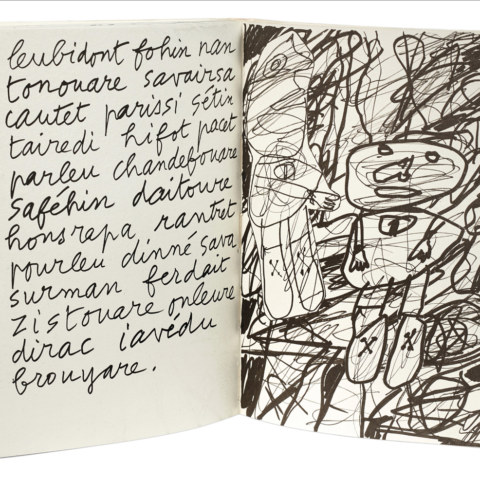 leubidont fohin nan
tonouare savairsa
cautet parissi sétin
tairedi hifot pacet
parleu chandefouare
saféhin daitoure
honsrapa rantret
pourleu dinné sava
surman ferdait
zistouare onleure
dirac iavédu
brouyare.